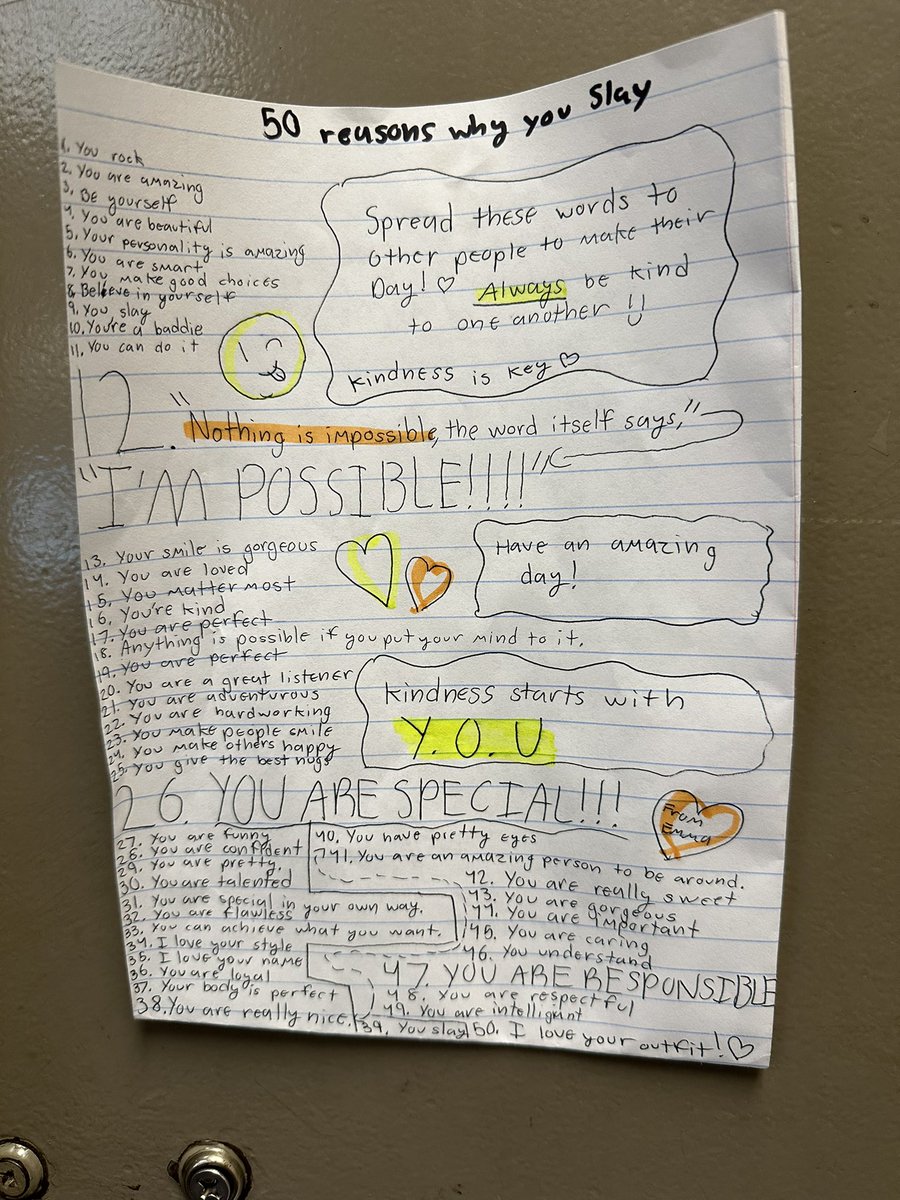 50 reasons why you slay
1. You rock
2. You are amazing
3. Be yourself
4. You are beautiful
5. Your personality is amazing
6. You are smart
7. You make good choices
8. Believe in yourself
9. You slay
10. You're a baddie
11. You can do it
Spread these words to
other people to make their
Day! ♡ Always be kind
to one another !!
kindness is key ♡
12. "Nothing is impossible, the word itself says,"
"I'M POSSIBLE!!!!"
13. Your smile is gorgeous
14. You are loved
15. You matter most
16. You're kind
17. You are perfect
18. Anything is possible if you put your mind to it.
19. You are perfect
20. You are a great listener
21. You are adventurous
22. You are hardworking
23. You make people smile
24. You make others happy
25. You give the best hugs
Have an amazing
day!
kindness starts with
Y.O.U
26. YOU ARE SPECIAL!!!
From
Emma
27. You are funny
28. You are confident
29. You are pretty.
30. You are talented
31. You are special in your own way.
32. You are flawless
33. You can achieve what you want.
34. I love your style
35. I love your name
36. You are loyal
37. Your body is perfect
38. You are really nice.
39. You slay
40. You have pretty eyes
41. You are an amazing person to be around.
42. You are really sweet
43. You are gorgeous
44. You are important
45. You are caring
46. You understand
47. YOU ARE RESPONSIBLE
48. You are respectful
49. You are intelligant
50. I love your outfit! ♡